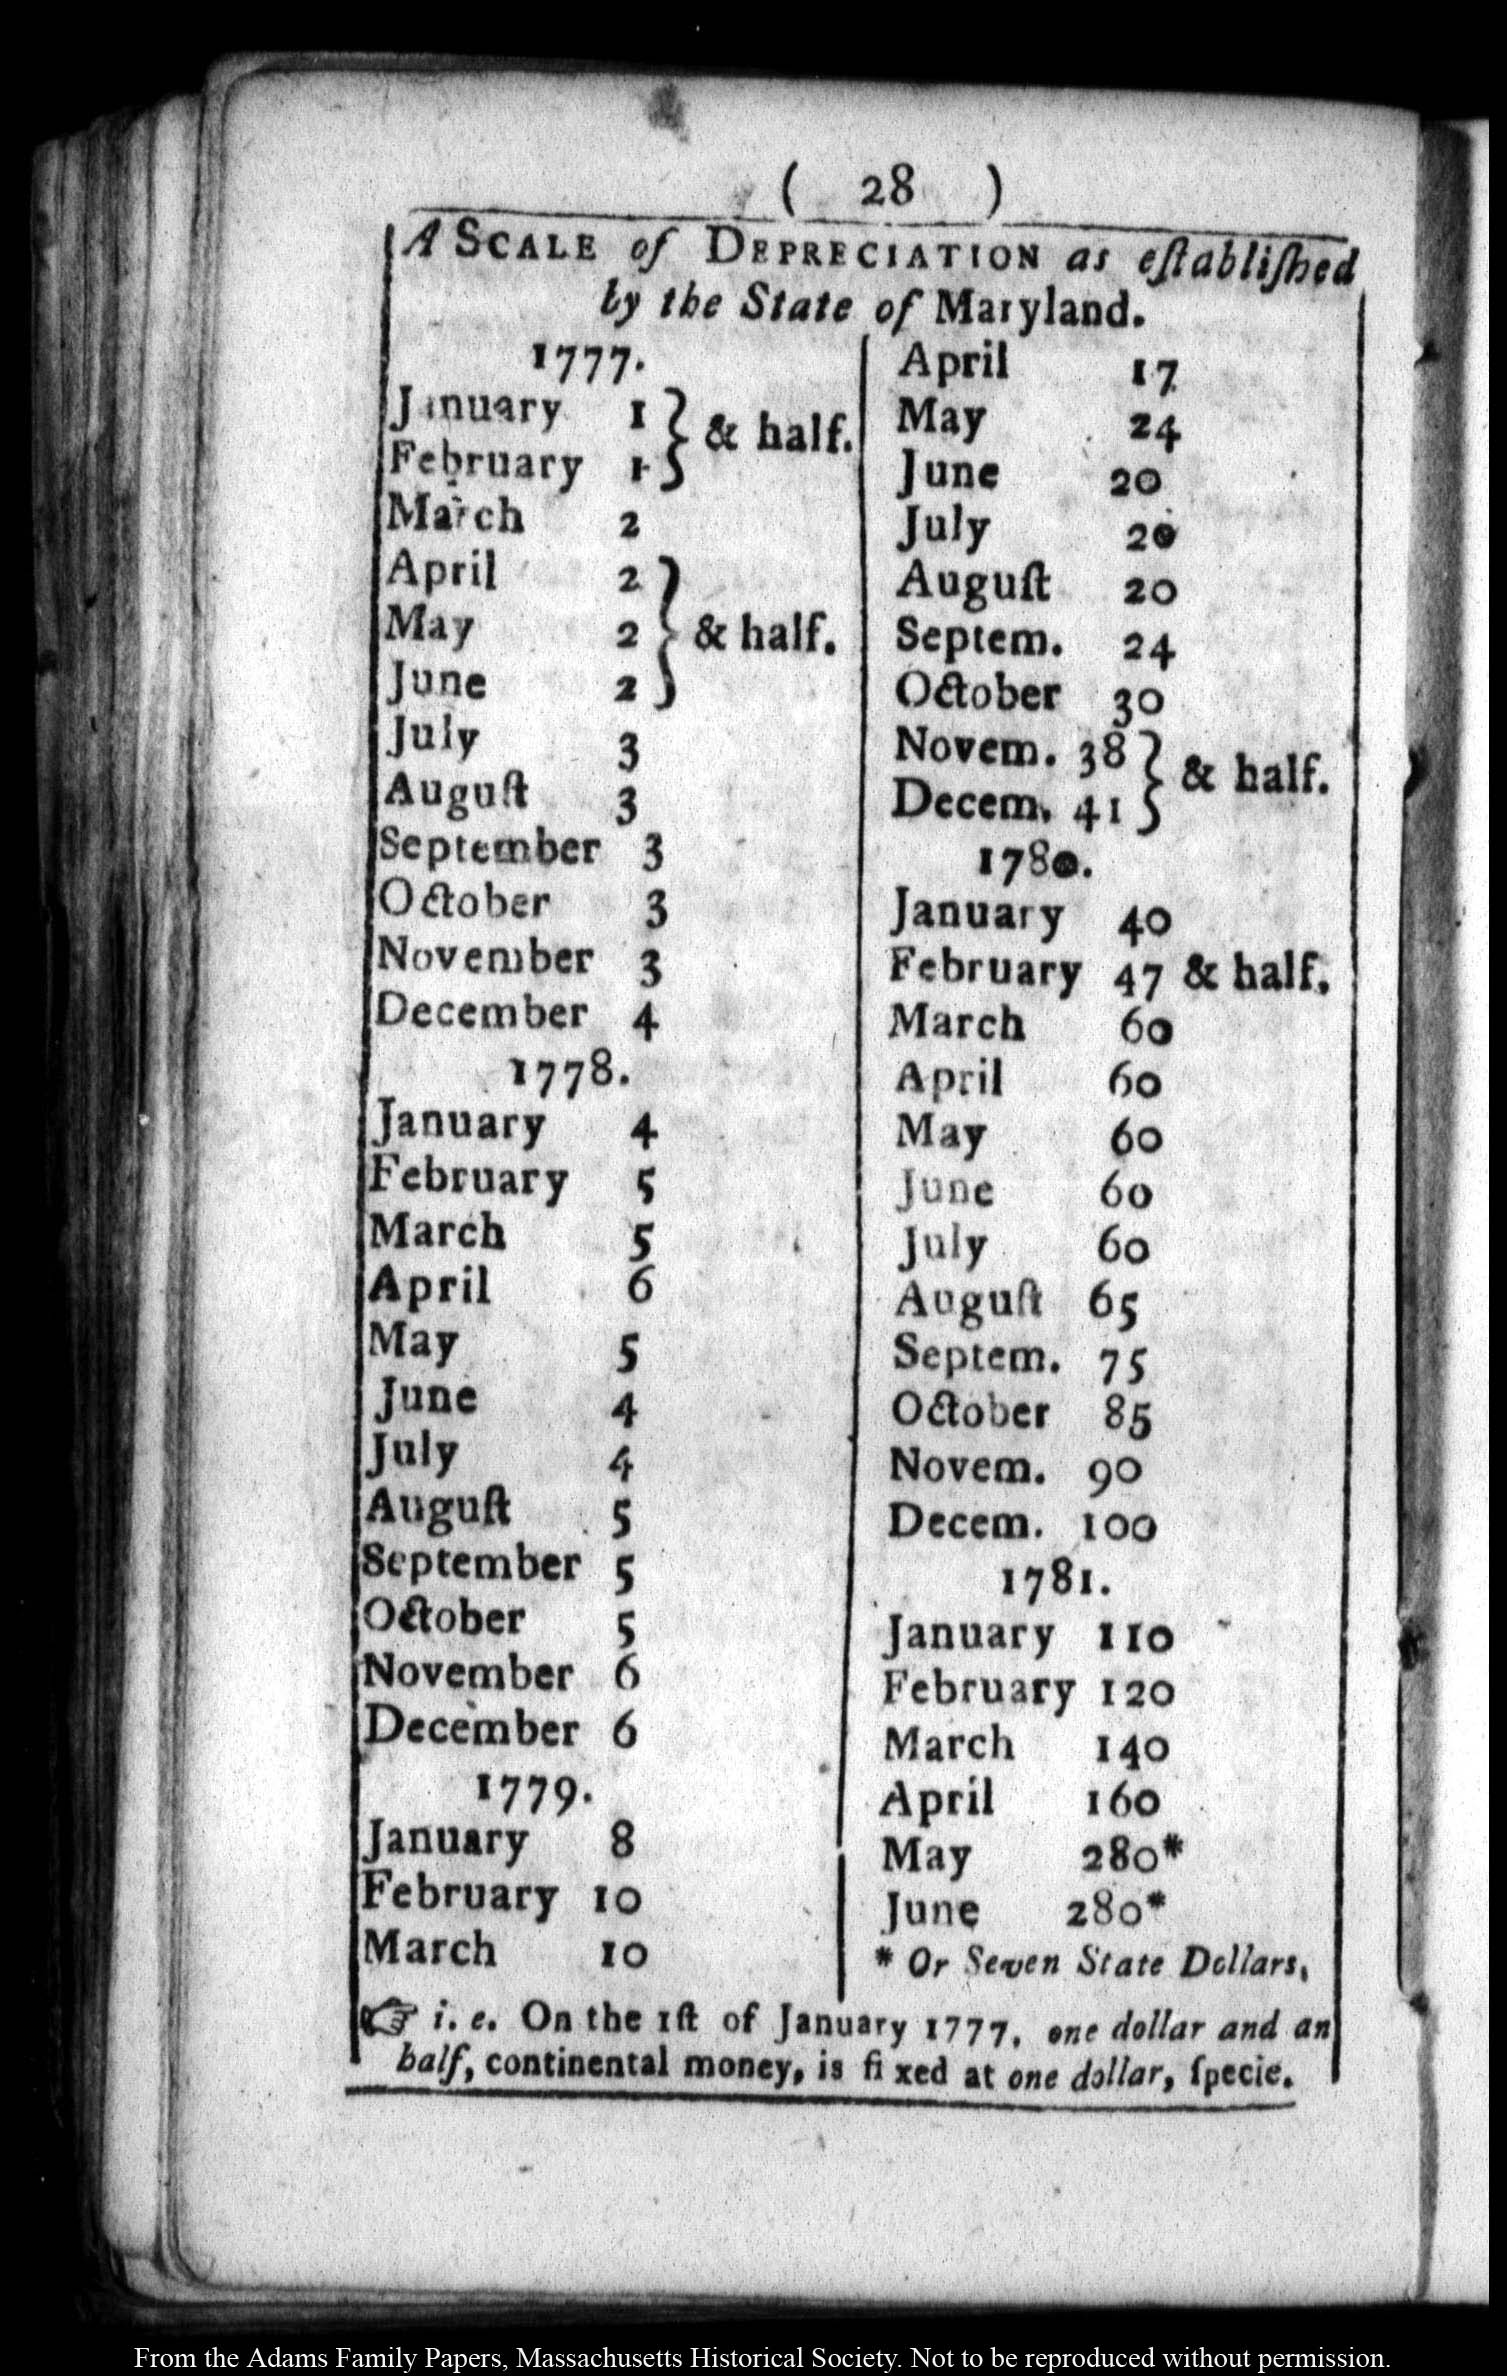 ( 28 )
A SCALE of DEPRECIATION as eſtabliſhed
by the State of Maryland.
1777.
January 1 } & half.
February 1
March 2
April 2
May 2 } & half.
June 2
July 3
Auguſt 3
September 3
October 3
November 3
December 4
1778.
January 4
February 5
March 5
April 6
May 5
June 4
July 4
Auguſt 5
September 5
October 5
November 6
December 6
1779.
January 8
February 10
March 10
April 17
May 24
June 20
July 20
Auguſt 20
Septem. 24
October 30
Novem. 38 } & half.
Decem. 41
1780.
January 40
February 47 & half.
March 60
April 60
May 60
June 60
July 60
Auguſt 65
Septem. 75
October 85
Novem. 90
Decem. 100
1781.
January 110
February 120
March 140
April 160
May 280*
June 280*
* Or Seven State Dollars.
☞ i. e. On the 1ſt of January 1777, one dollar and an
half, continental money, is fixed at one dollar, ſpecie.
From the Adams Family Papers, Massachusetts Historical Society. Not to be reproduced without permission.